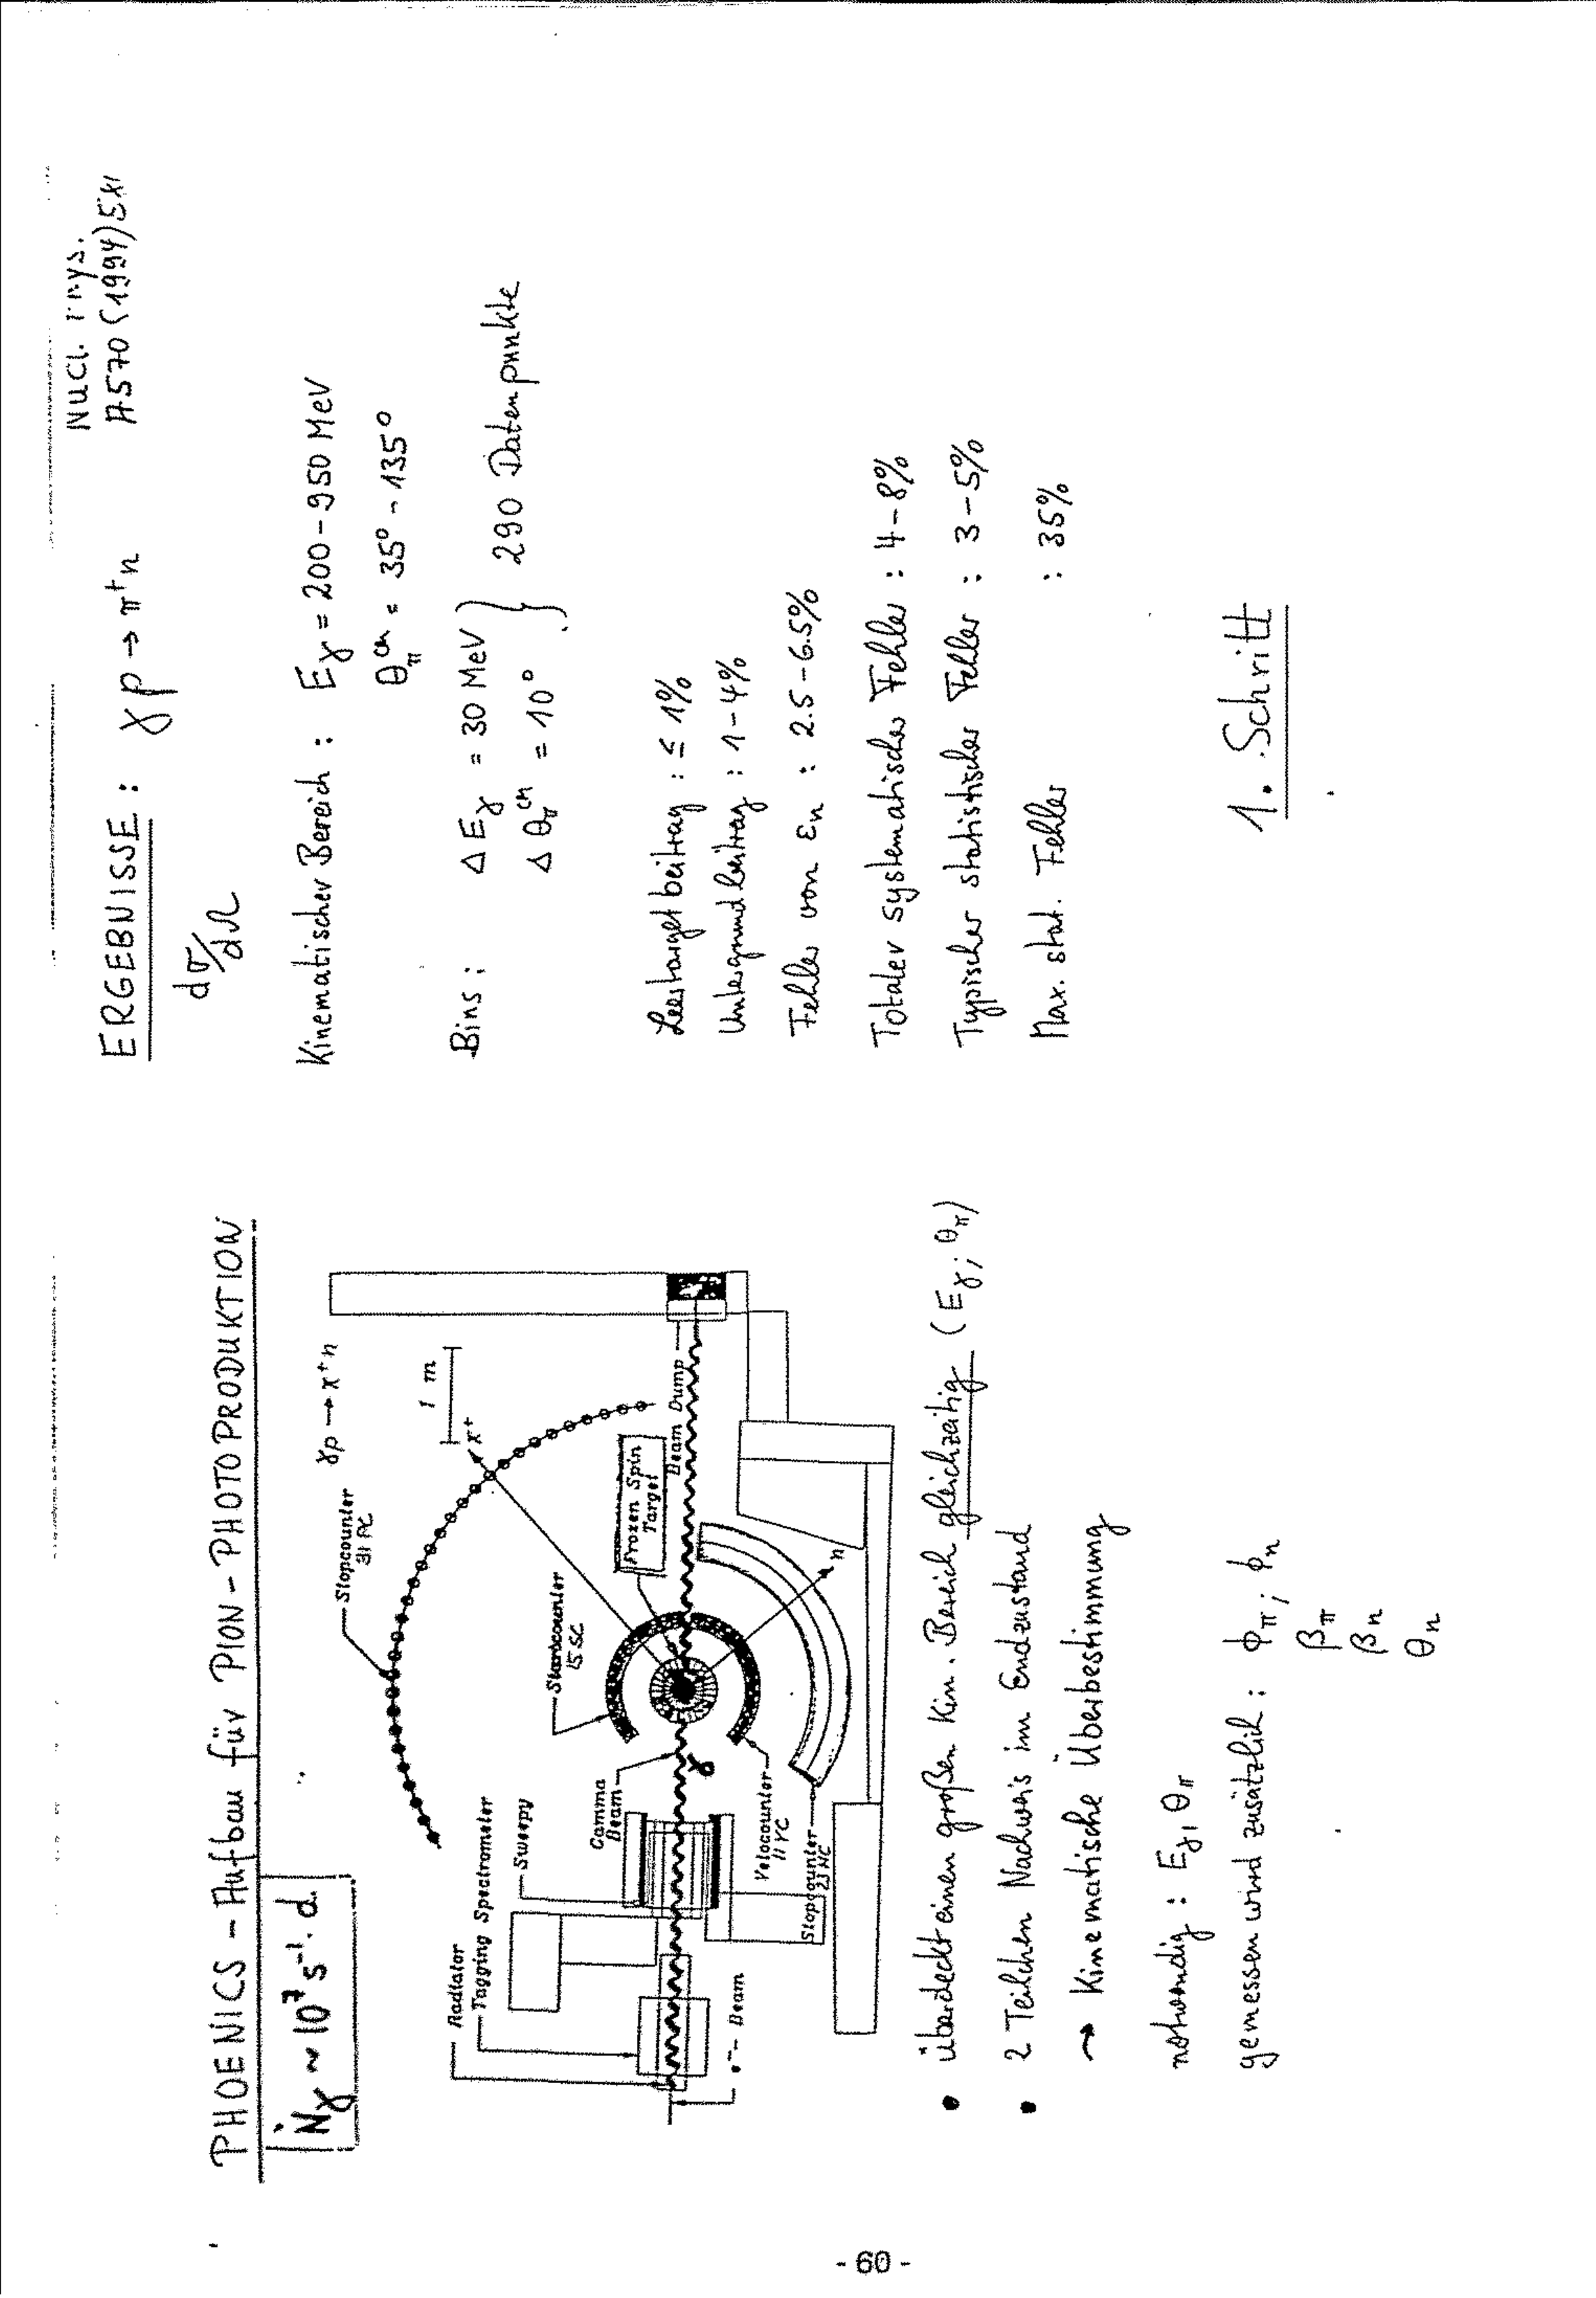 PHOENICS - Aufbau für PION - PHOTOPRODUKTION
Ṅγ ~ 10⁷ s⁻¹.
γp → π⁺n
Stopcounter
31 PC
1 m
π⁺
Radiator
Tagging Spectrometer
Sweepy
Startcounter
15 SC
Frozen Spin
Target
Gamma
Beam
Beam Dump
γ
n
Beam
Velocounter
11 VC
Stopcounter
23 NC
• überdeckt einen großen Kin. Bereich gleichzeitig (Eγ; θπ)
• 2 Teilchen Nachweis im Endzustand
→ Kinematische Überbestimmung
notwendig : Eγ, θπ
gemessen wird zusätzlich : ϕπ; ϕn
βπ
βn
θn
Nucl. Phys.
A570 (1994)
ERGEBNISSE : γp → π⁺n
dσ/dΩ
Kinematischer Bereich : Eγ = 200 - 950 MeV
θπ^cm = 35° - 135°
Bins : ΔEγ = 30 MeV
Δθπ^cm = 10° } 290 Datenpunkte
Leertargetbeitrag : ≤ 1%
Untergrundbeitrag : 1 - 4%
Fehler von εn : 2.5 - 6.5%
Totaler systematischer Fehler : 4 - 8%
Typischer statistischer Fehler : 3 - 5%
Max. stat. Fehler : 35%
1. Schritt
- 60 -